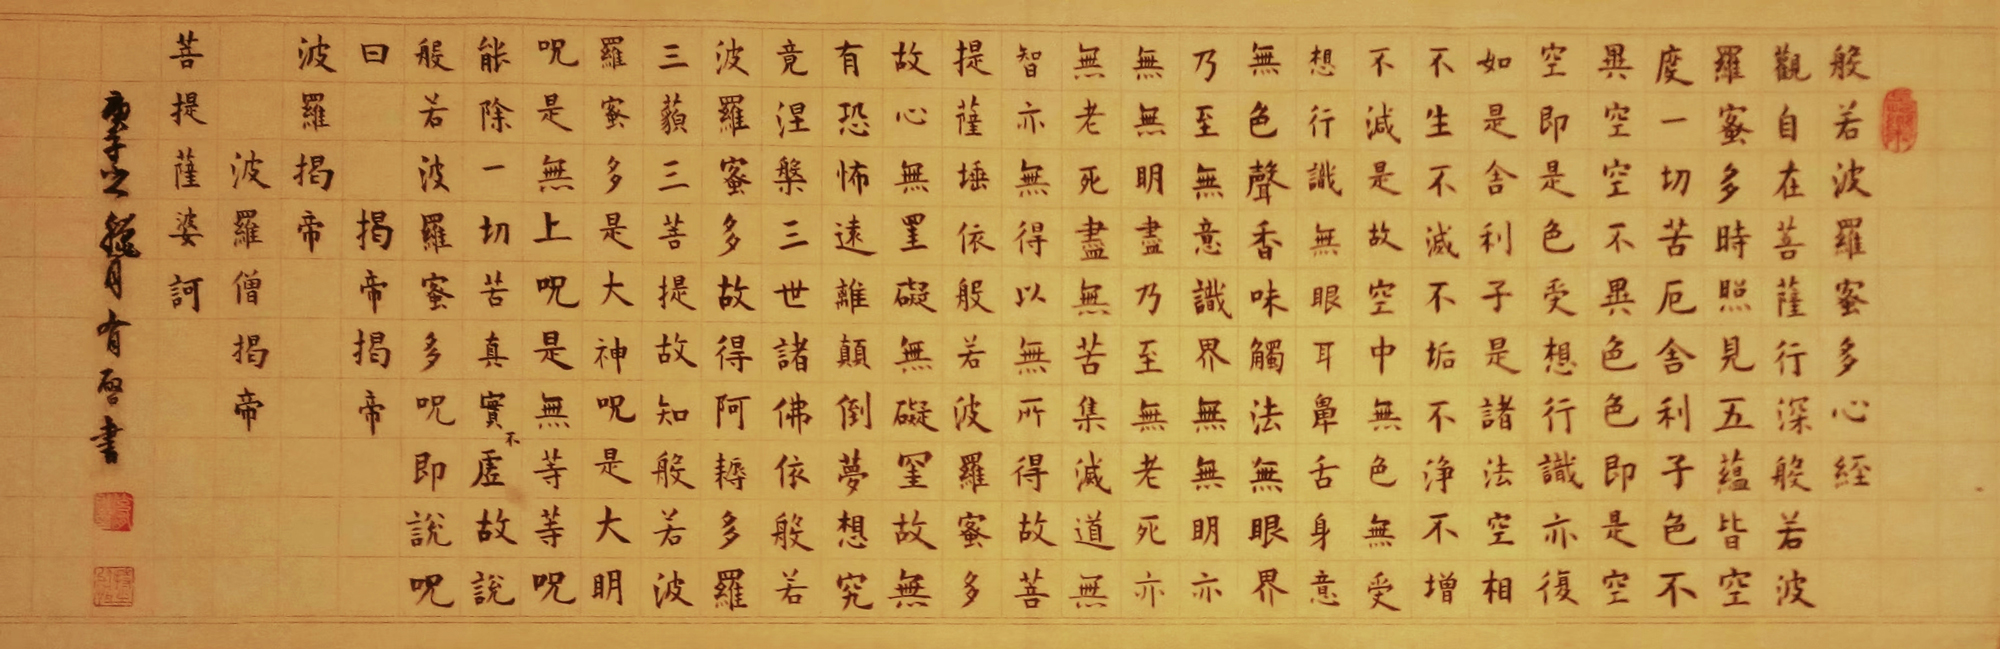 般若波羅蜜多心経
觀自在菩薩行深般若波
羅蜜多時照見五蘊皆空
度一切苦厄舍利子色不
異空空不異色色即是空
空即是色受想行識亦復
如是舍利子是諸法空相
不生不滅不垢不淨不增
不減是故空中無色無受
想行識無眼耳鼻舌身意
無色聲香味觸法無眼界
乃至無意識界無無明亦
無無明盡乃至無老死亦
無老死盡無苦集滅道無
智亦無得以無所得故菩
提薩埵依般若波羅蜜多
故心無罣礙無礙罣故無
有恐怖遠離顛倒夢想究
竟涅槃三世諸佛依般若
波羅蜜多故得阿耨多羅
三藐三菩提故知般若波
羅蜜多是大神呪是大明
呪是無上呪是無等等呪
能除一切苦真實不虛故說
般若波羅蜜多呪即說呪
曰 揭帝揭帝
波羅揭帝
波羅僧揭帝
菩提薩婆訶
庚子之臘月 有啓書